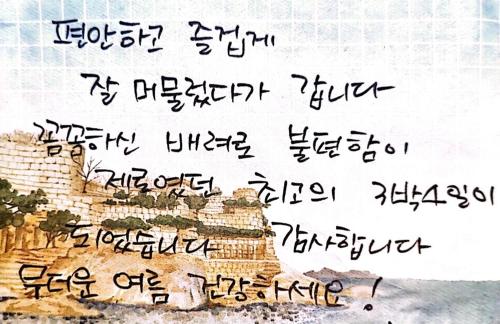 편안하고 즐겁게
잘 머물렀다가 갑니다
꼼꼼하신 배려로 불편함이
제로였던 최고의 3박4일이
되었습니다 감사합니다
무더운 여름 건강하세요!